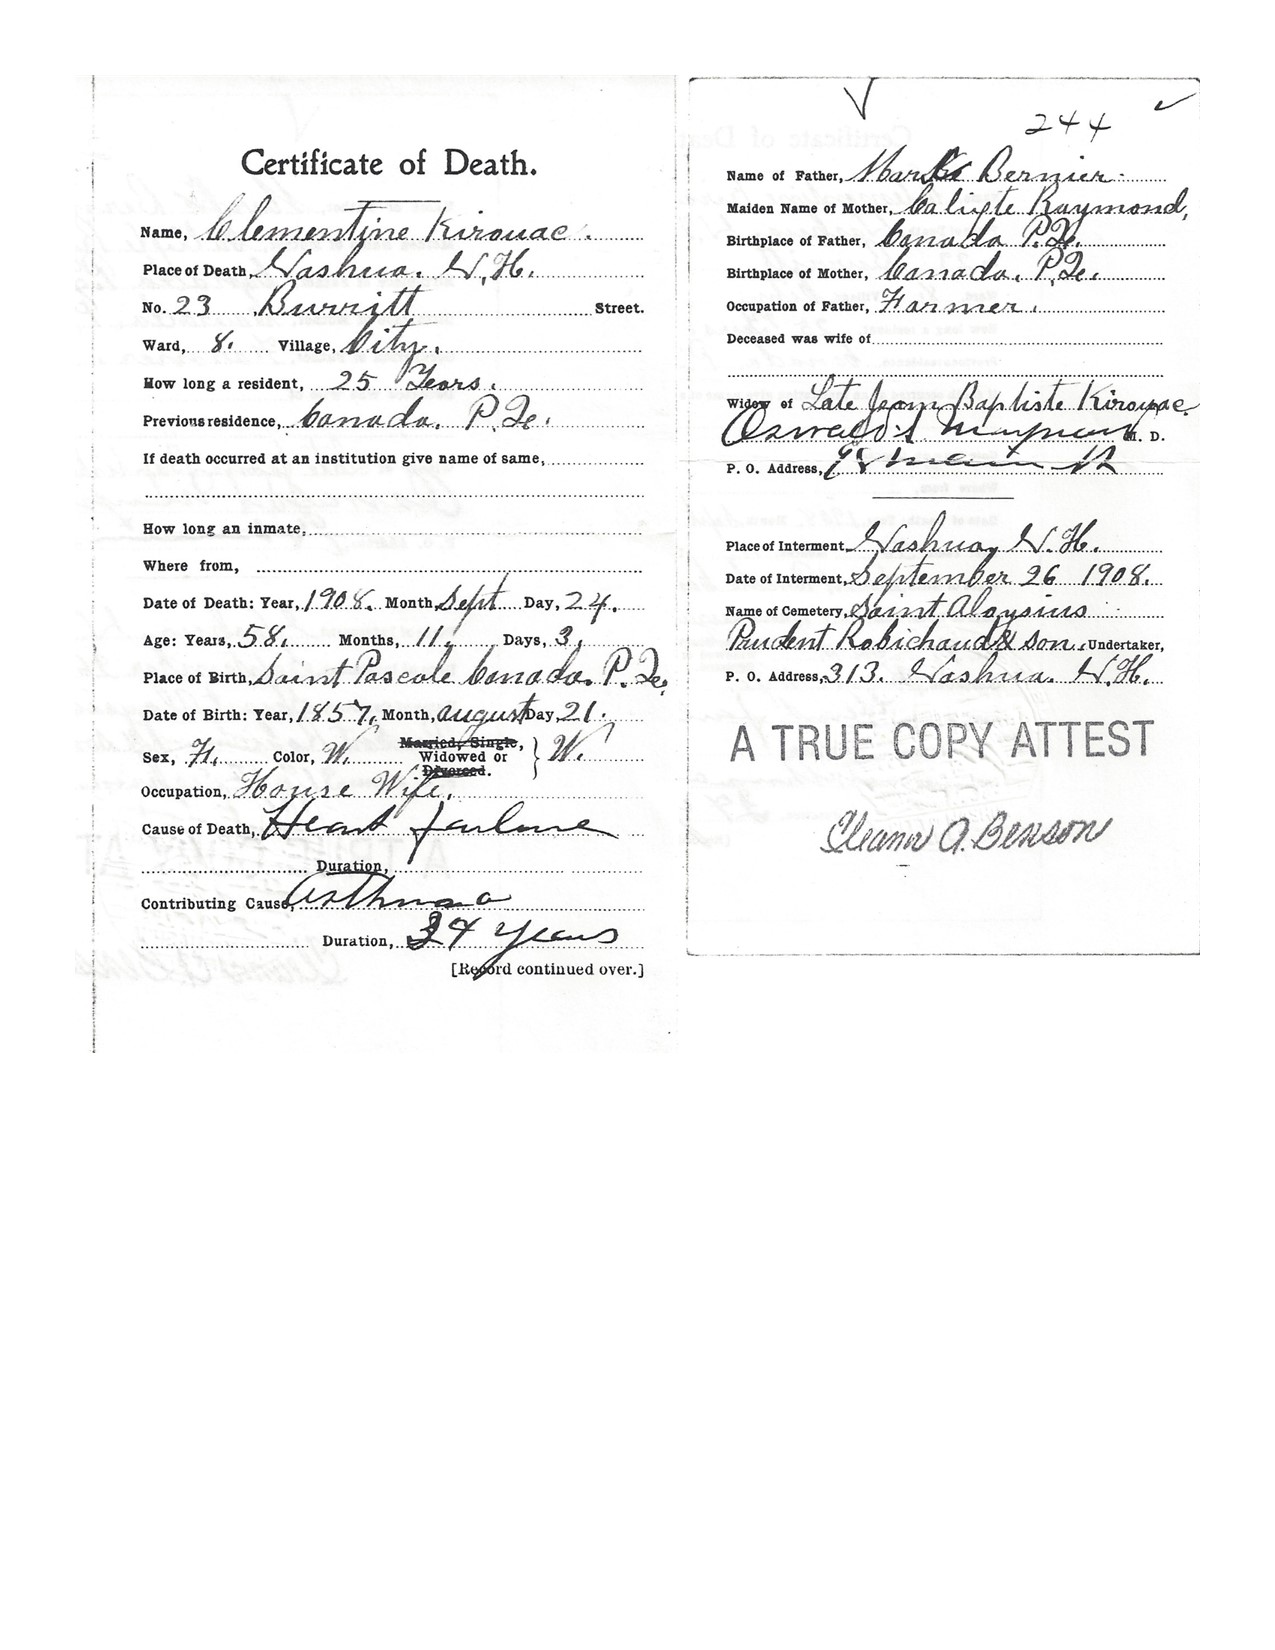 Certificate of Death.
Name, Clementine Kirouac.
Place of Death, Nashua. N.H.
No. 23 Burritt Street.
Ward, 8. Village, City.
How long a resident, 25 Years.
Previous residence, Canada. P.Q.
If death occurred at an institution give name of same,
How long an inmate,
Where from,
Date of Death: Year, 1908. Month, Sept Day, 24.
Age: Years, 58. Months, 11, Days, 3,
Place of Birth, Saint Pascale Canada. P.Q.
Date of Birth: Year, 1857, Month, august Day, 21.
Sex, F. Color, W. Married, Single, Widowed or Divorced. } W.
Occupation, House Wife.
Cause of Death, Heart failure
Duration,
Contributing Cause, Asthma
Duration, 24 years
[Record continued over.]
244
Name of Father, Bernier.
Maiden Name of Mother, Calixte Raymond,
Birthplace of Father, Canada P.Q.
Birthplace of Mother, Canada. P.Q.
Occupation of Father, Farmer.
Deceased was wife of
Widow of Late Jean Baptiste Kirouac
M. D.
P. O. Address,
Place of Interment, Nashua, N.H.
Date of Interment, September 26 1908.
Name of Cemetery, Saint Aloysius
Prudent Robichaud & son. Undertaker,
P. O. Address, 313. Nashua. N.H.
A TRUE COPY ATTEST
Eleanor A. Benson